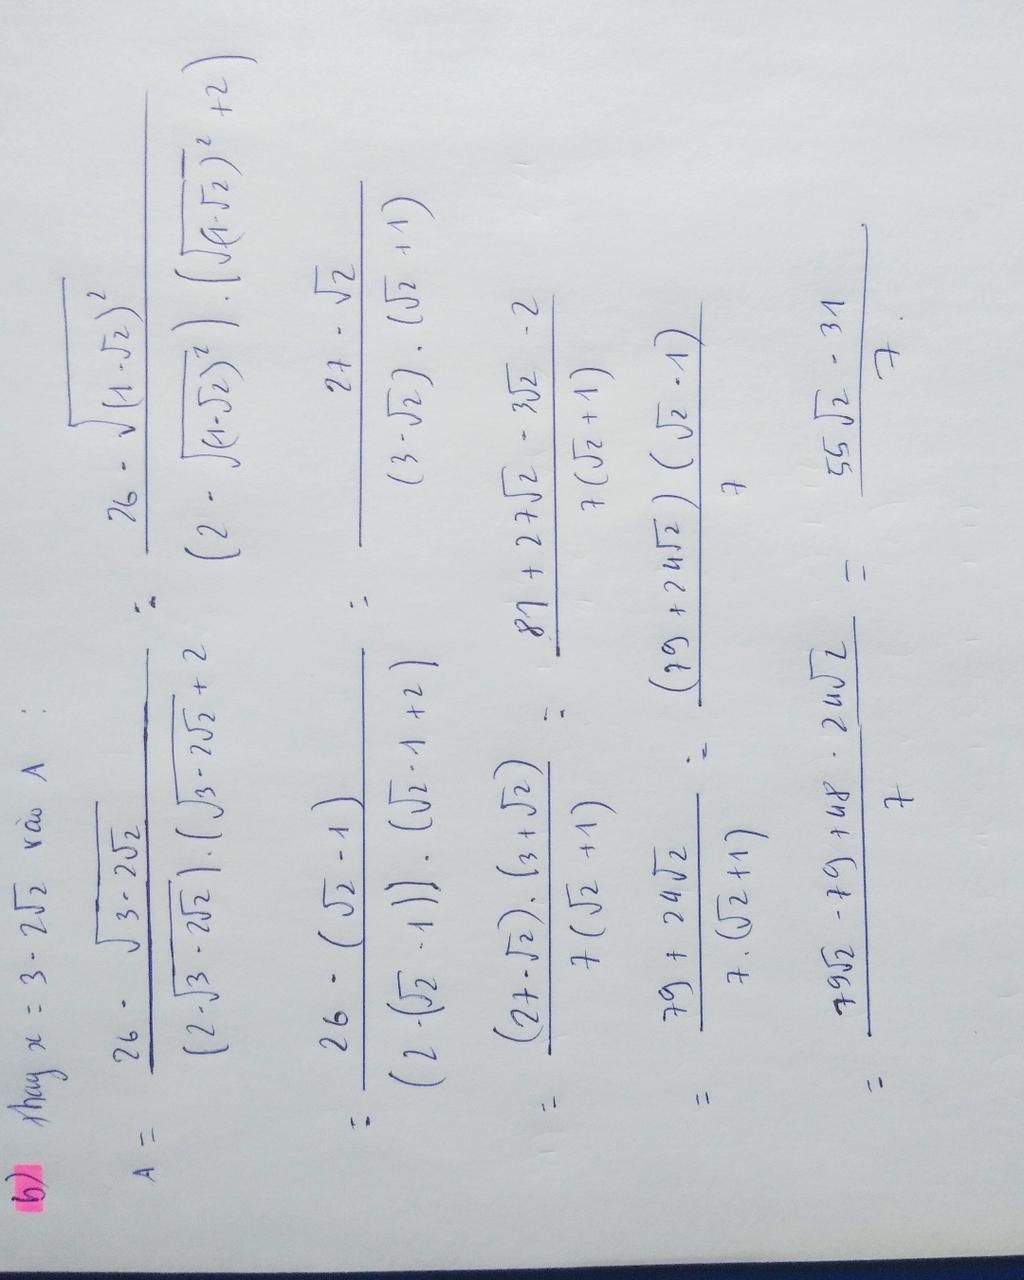 b) thay x = 3 - 2√2 vào A :
A = (26 - √(3 - 2√2)) / ((2 - √(3 - 2√2)).(√(3 - 2√2) + 2) = (26 - √((1-√2)²)) / ((2 - √((1-√2)²)).(√((1-√2)²) + 2)
= (26 - (√2 - 1)) / ((2 - (√2 - 1)).(√2 - 1 + 2) = (27 - √2) / ((3 - √2).(√2 + 1))
= ((27 - √2).(3 + √2)) / (7(√2 + 1)) = (81 + 27√2 - 3√2 - 2) / (7(√2 + 1))
= (79 + 24√2) / (7.(√2 + 1)) = ((79 + 24√2)(√2 - 1)) / 7
= (79√2 - 79 + 48 - 24√2) / 7 = (55√2 - 31) / 7.